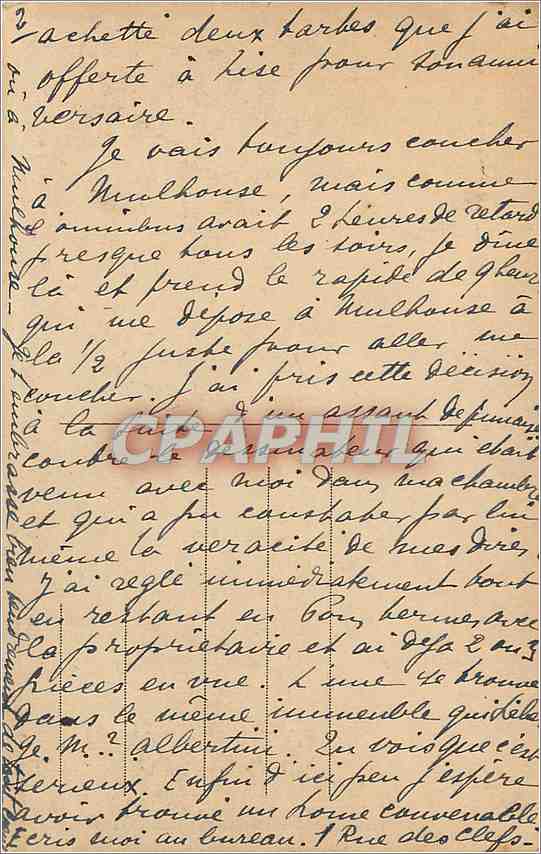 2/
achetté deux tartes que j'ai
offerte à Lise pour son anni
versaire.
Je vais toujours coucher
à Mulhouse, mais comme
l'omnibus avait 2 heures de retard
presque tous les soirs, je dîne
là et prend le rapide de 9 heur
qui me dépose à Mulhouse à
la 1/2 juste pour aller me
coucher. J'ai pris cette décision
à la suite d'un assaut de punaise
contre le dessinateur qui était
venu avec moi dans ma chambre
et qui a pu constater par lui
même la véracité de mes dires.
J'ai réglé immédiatement tout
en restant en bons termes avec
la propriétaire et ai déjà 2 ou 3
pièces en vue. L'une se trouve
dans le même immeuble
M. Albertini. Tu vois que c'est
sérieux. Enfin d'ici peu j'espère
avoir trouvé un home convenable
Ecris moi au bureau. 1 Rue des Clefs-
ou à Mulhouse - Je t'embrasse bien tendrement de tout
CPAPHIL